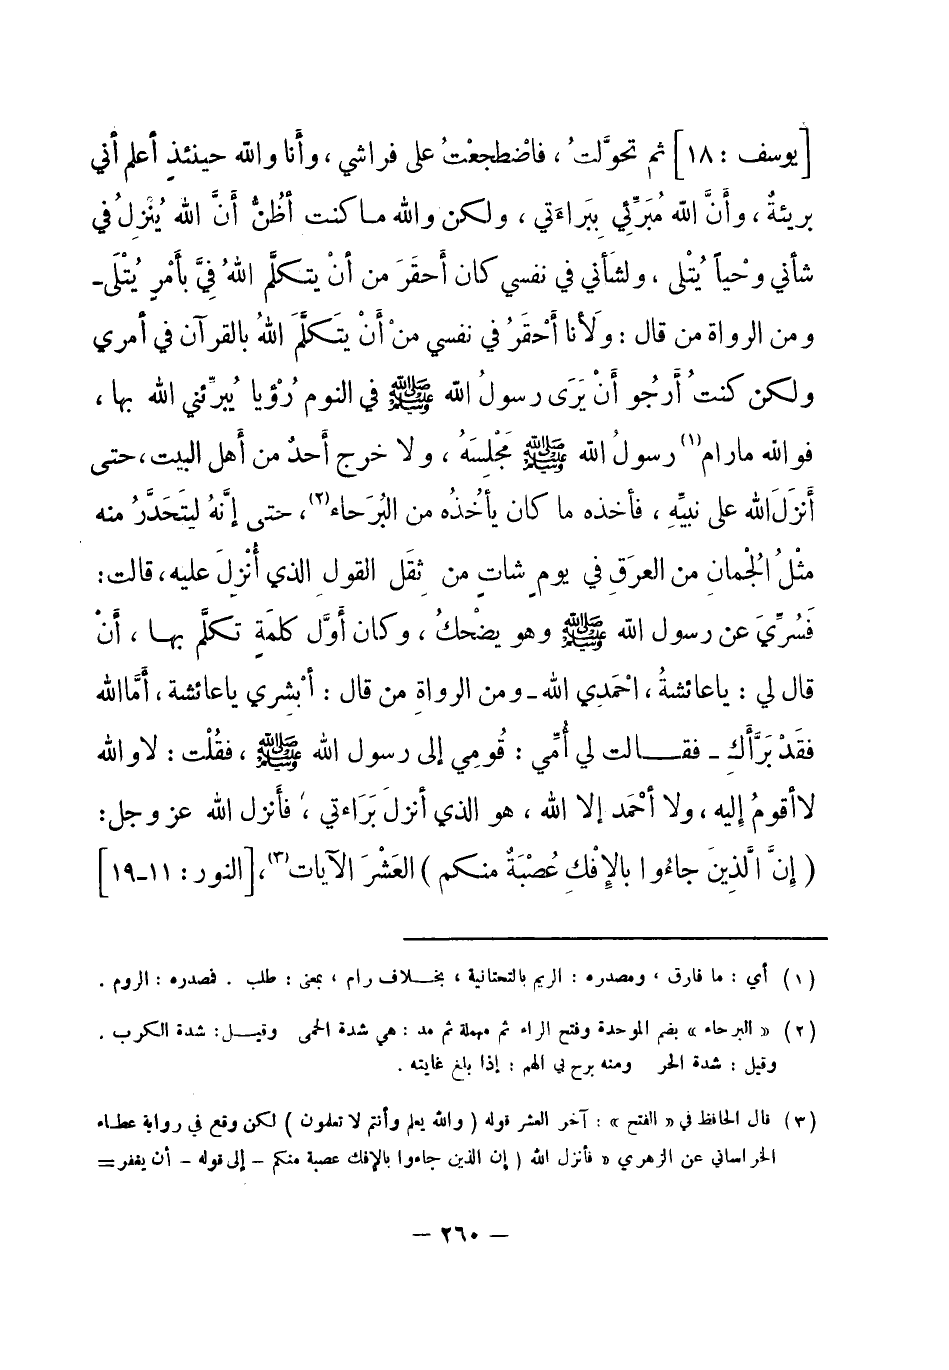 [يوسف : ١٨] ثم تحوَّلتُ ، فاضْطجعْتُ على فراشي ، وأَنا والله حينئذٍ أعلم أَني
بريئةٌ ، وأَنَّ الله مُبَرِّئي بِبَراءَتي ، ولكن والله ما كنت أَظُنُّ أَنَّ الله يُنْزِلُ في
شأني وحْياً يُتْلى ، ولشأني في نفسي كان أَحقَرَ من أنْ يتكلَّم اللهُ فيَّ بأَمْرٍ يُتْلَى ـ
ومن الرواة من قال : ولَأنا أَحْقَرُ في نفسي منْ أَنْ يتَكلَّمَ اللهُ بالقرآن في أمري
ولكن كنتُ أَرجُو أَنْ يَرَى رسولُ الله ﷺ في النوم رُؤيا يُبرِّئني الله بها ،
فوالله مارام(١) رسولُ الله ﷺ مَجْلِسَهُ ، ولا خرج أَحدٌ من أَهل البيت، حتى
أَنزَلَ الله على نبيِّه ، فأَخذه ما كان يأخُذه من البُرَحاء(٢) ، حتى إنَّهُ ليَتَحَدَّرُ منه
مثْلُ الْجُمانِ من العرَقِ في يومٍ شاتٍ من ثِقَل القولِ الذي أُنْزِلَ عليه، قالت:
فَسُرِّيَ عن رسول الله ﷺ وهو يضْحكُ ، وكان أَوَّل كلمَةٍ تكلَّم بها ، أَنْ
قال لي : ياعائشةُ ، احْمَدِي الله ـ ومن الرواةِ من قال : أبْشري ياعائشة ، أَمَّا الله
فقَدْ بَرَّأَكِ ـ فقـــالت لي أُمِّي : قُومِي إلى رسول الله ﷺ ، فقُلْت : لا والله
لا أَقومُ إليه ، ولا أَحْمَد إلا الله ، هو الذي أنزلَ بَرَاءَتي ، فأَنزل الله عز وجل:
( إِنَّ الَّذِينَ جاءُوا بالإِفْكِ عُصْبَةٌ منكم ) العَشْرَ الآيات(٣)، [النور : ١١-١٩]
(١) أي : ما فارق ، ومصدره : الريم بالتحتانية ، بخـلاف رام ، بمعنى : طلب . فمصدره : الروم .
(٢) « البرحاء » بضم الموحدة وفتح الراء ثم مهملة ثم مد : هي شدة الحمى وقيـل: شدة الكرب .
وقيل : شدة الحر ومنه برح بي الهم : إذا بلغ غايته .
(٣) قال الحافظ في « الفتح » : آخر العشر قوله ( والله يعلم وأنتم لا تعلمون ) لكن وقع في رواية عطاء
الخراساني عن الزهري « فأنزل الله ( إن الذين جاءوا بالإفك عصبة منكم - إلى قوله - أن يغفر =
— ٢٦٠ —